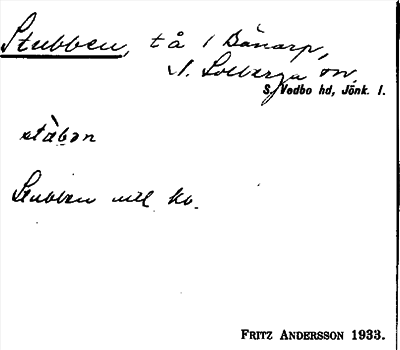 Stubben, tå i Bänarp,
N. Solberga sn,
S. Vedbo hd, Jönk. l.
stàbən
Stubben utl kb.
FRITZ ANDERSSON 1933.